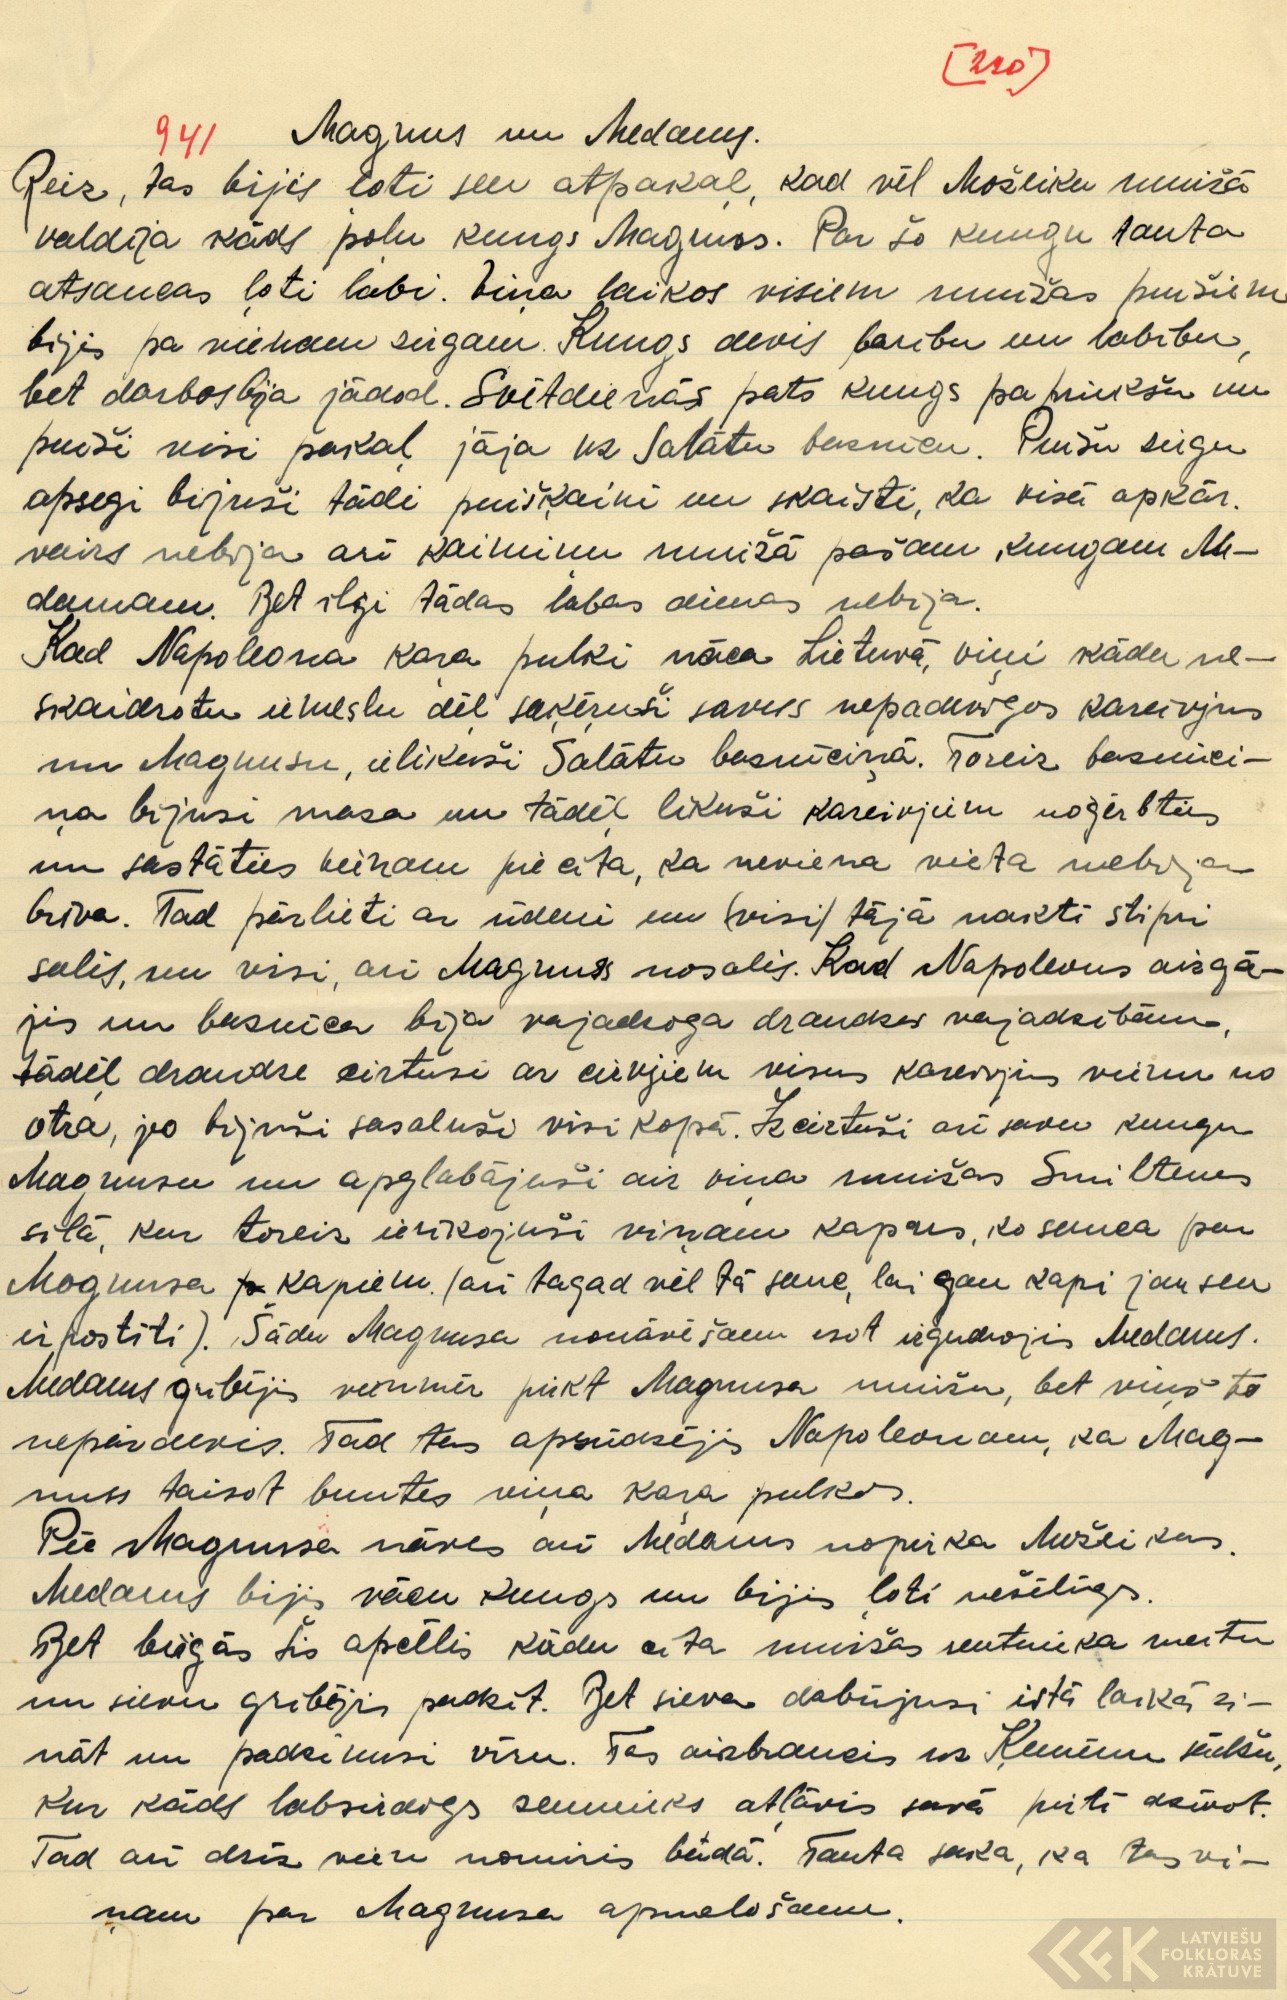 [220]
941 Magnus un Medams.
Reiz, tas bijis ļoti sen atpakaļ, kad vēl Možeiku muižā
valdīja kāds poļu kungs Magnus. Par šo kungu tauta
atsaucas ļoti labi. Viņa laikos visiem muižas puišiem
bijis pa vienam zirgam. Kungs devis barību un labību,
bet darbos bija jādod. Svētdienās pats kungs pa priekšu un
puiši visi pakaļ jāja uz Salātu baznicu. Puišu zirgu
apsegi bijuši tādi puišķaini un skaisti, ka visā apkār.
vairs nebija arī kaimiņu muižā pašam kungam Me-
damam. Bet ilgi tādas labas dienas nebija.
Kad Napoleona kaŗa pulki nāca Lietuvā, viņi kādu ne-
skaidrotu iemeslu dēļ saķēruši savus nepadevīgos kareivjus
un Magnusu, ielikuši Salātu baznīciņā. Toreiz baznīci-
ņa bijusi maza un tādēļ likuši kareivjiem noģērbties
un sastāties vienam pie cita, ka neviena vieta nebija
brīva. Tad pārlieti ar ūdeni un (visi) tājā naktī stipri
salis, un visi, arī Magnuss nosalis. Kad Napoleons aizgā-
jis un baznīca bija vajadzīga draudzes vajadzībām,
tādēļ draudze cirtusi ar cirvjiem visus kareivjus vienu no
otra, jo bijuši sasaluši visi kopā. Izcirtuši arī savu kungu
Magnusu un apglabājuši aiz viņa muižas Smiltenes
silā, kur toreiz ierīkojuši viņam kapus, ko sauca par
Magnusa kapiem. (arī tagad vēl tā sauc, lai gan kapi jau sen
ir postīti). Šādu Magnusa nonāvēšanu esot izgudrojis Medams.
Medams gribējis vienmēr pirkt Magnusa muižu, bet viņš to
nepārdevis. Tad tas apsūdzējis Napoleonam, ka Mag-
nuss taisot buntes viņa kaŗa pulkos.
Pēc Magnusa nāves arī Medams nopirka Možeikus.
Medams bijis vācu kungs un bijis ļoti nešēlīgs.
Bet beigās šis apcēlis kādu cita muižas rentnieka meitu
un sievu gribējis padzīt. Bet sieva dabūjusi īstā laikā zi-
nāt un padzinusi vīru. Tas aizbraucis uz Ķemeņu sādžu,
kur kāds labsirdīgs zemnieks atļāvis savā pirtī dzīvot.
Tad arī drīz vien nomiris bēdā. Tauta saka, ka tas vi-
ņam par Magnusa apmelošanu.
LATVIEŠU
FOLKLORAS
KRĀTUVE